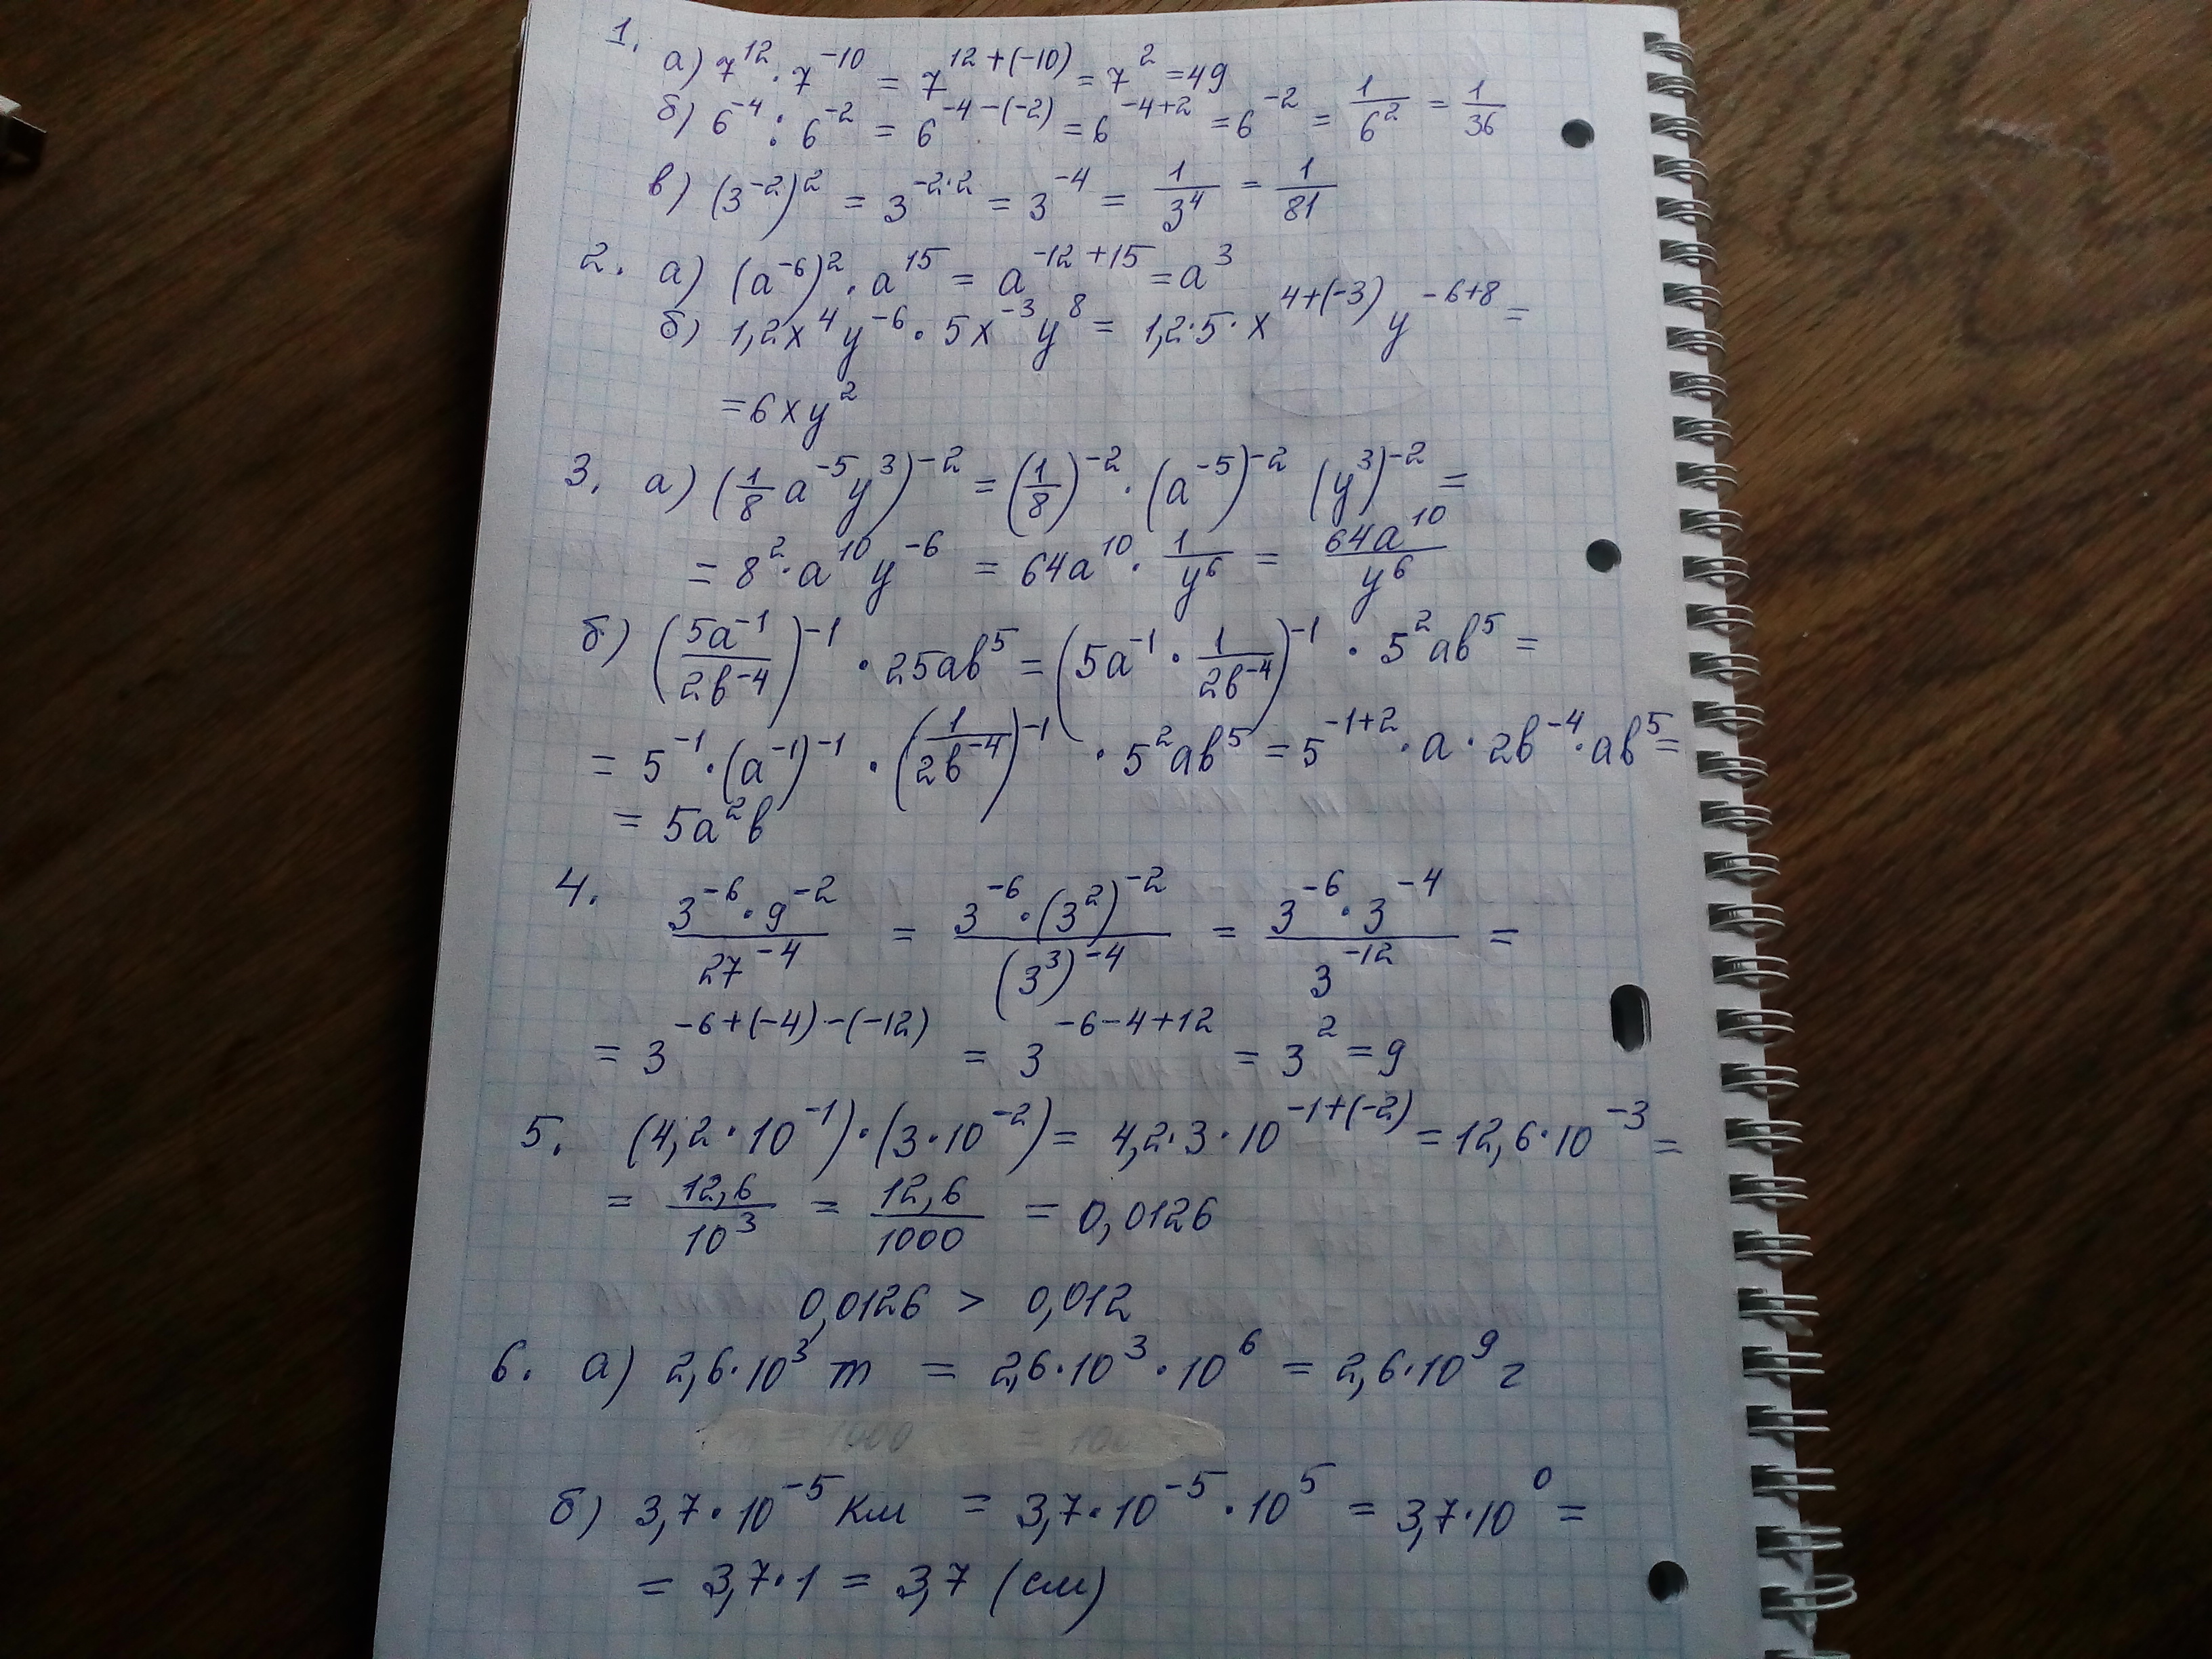 1. а) 7¹² · 7⁻¹⁰ = 7¹²⁺⁽⁻¹⁰⁾ = 7² = 49
б) 6⁻⁴ : 6⁻² = 6⁻⁴⁻⁽⁻²⁾ = 6⁻⁴⁺² = 6⁻² = 1/6² = 1/36
в) (3⁻²)² = 3^(-2·2) = 3⁻⁴ = 1/3⁴ = 1/81
2. а) (a⁻⁶)² · a¹⁵ = a⁻¹²⁺¹⁵ = a³
б) 1,2x⁴y⁻⁶ · 5x⁻³y⁸ = 1,2·5·x⁴⁺⁽⁻³⁾ y⁻⁶⁺⁸ =
= 6xy²
3. а) (1/8 a⁻⁵y³)⁻² = (1/8)⁻² · (a⁻⁵)⁻² (y³)⁻² =
= 8² · a¹⁰y⁻⁶ = 64a¹⁰ · 1/y⁶ = 64a¹⁰/y⁶
б) (5a⁻¹/2b⁻⁴)⁻¹ · 25ab⁵ = (5a⁻¹ · 1/2b⁻⁴)⁻¹ · 5²ab⁵ =
= 5⁻¹ · (a⁻¹)⁻¹ · (1/2b⁻⁴)⁻¹ · 5²ab⁵ = 5⁻¹⁺² · a · 2b⁻⁴ · ab⁵ =
= 5a²b
4. 3⁻⁶·9⁻²/27⁻⁴ = 3⁻⁶·(3²)⁻²/(3³)⁻⁴ = 3⁻⁶·3⁻⁴/3⁻¹² =
= 3⁻⁶⁺⁽⁻⁴⁾⁻⁽⁻¹²⁾ = 3⁻⁶⁻⁴⁺¹² = 3² = 9
5. (4,2·10⁻¹)·(3·10⁻²) = 4,2·3·10⁻¹⁺⁽⁻²⁾ = 12,6·10⁻³ =
= 12,6/10³ = 12,6/1000 = 0,0126
0,0126 > 0,012
6. а) 2,6·10³ т = 2,6·10³·10⁶ = 2,6·10⁹ г
б) 3,7·10⁻⁵ км = 3,7·10⁻⁵·10⁵ = 3,7·10⁰ =
= 3,7·1 = 3,7 (см)